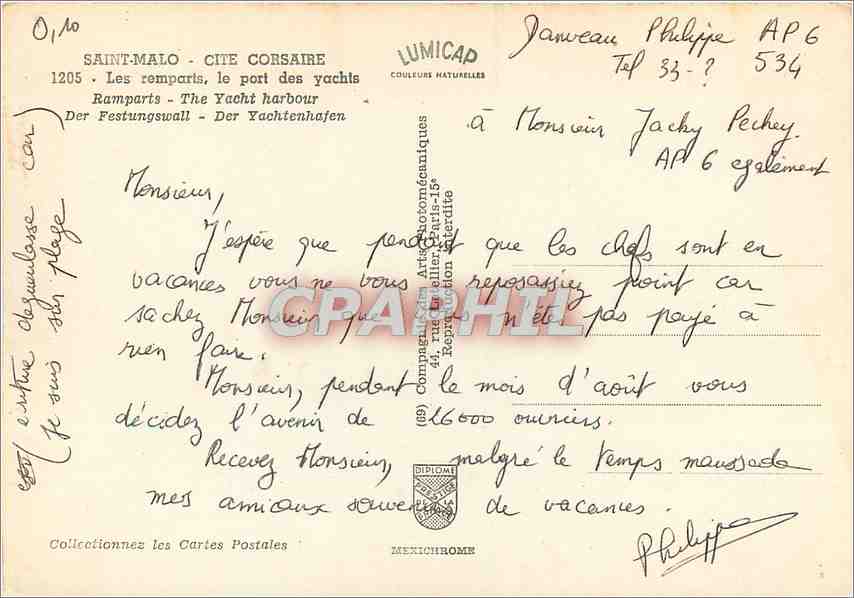 0,10
SAINT-MALO - CITE CORSAIRE
1205 - Les remparts, le port des yachts
Ramparts - The Yacht harbour
Der Festungswall - Der Yachtenhafen
LUMICAP
COULEURS NATURELLES
Philippe AP 6
Tel 33-? 534
à Monsieur Jacky Pechey.
AP 6 egalement
Monsieur,
J'espère que pendant que les chefs sont en
vacances vous ne vous reposassiez point car
sachez Monsieur que n'êtes pas payé à
rien faire.
Monsieur, pendant le mois d'août vous
décidez l'avenir de 26000 ouvriers.
Recevez Monsieur, malgré le temps maussade
mes amicaux souvenirs de vacances.
Philippe
ecriture degueulasse car
je suis sur plage
(69) Compagnie des Arts Photomécaniques
44, rue Letellier, Paris-15e
Reproduction interdite
CPAPHIL
DIPLOME
PRESTIGE
DE LA
FRANCE
Collectionnez les Cartes Postales
MEXICHROME